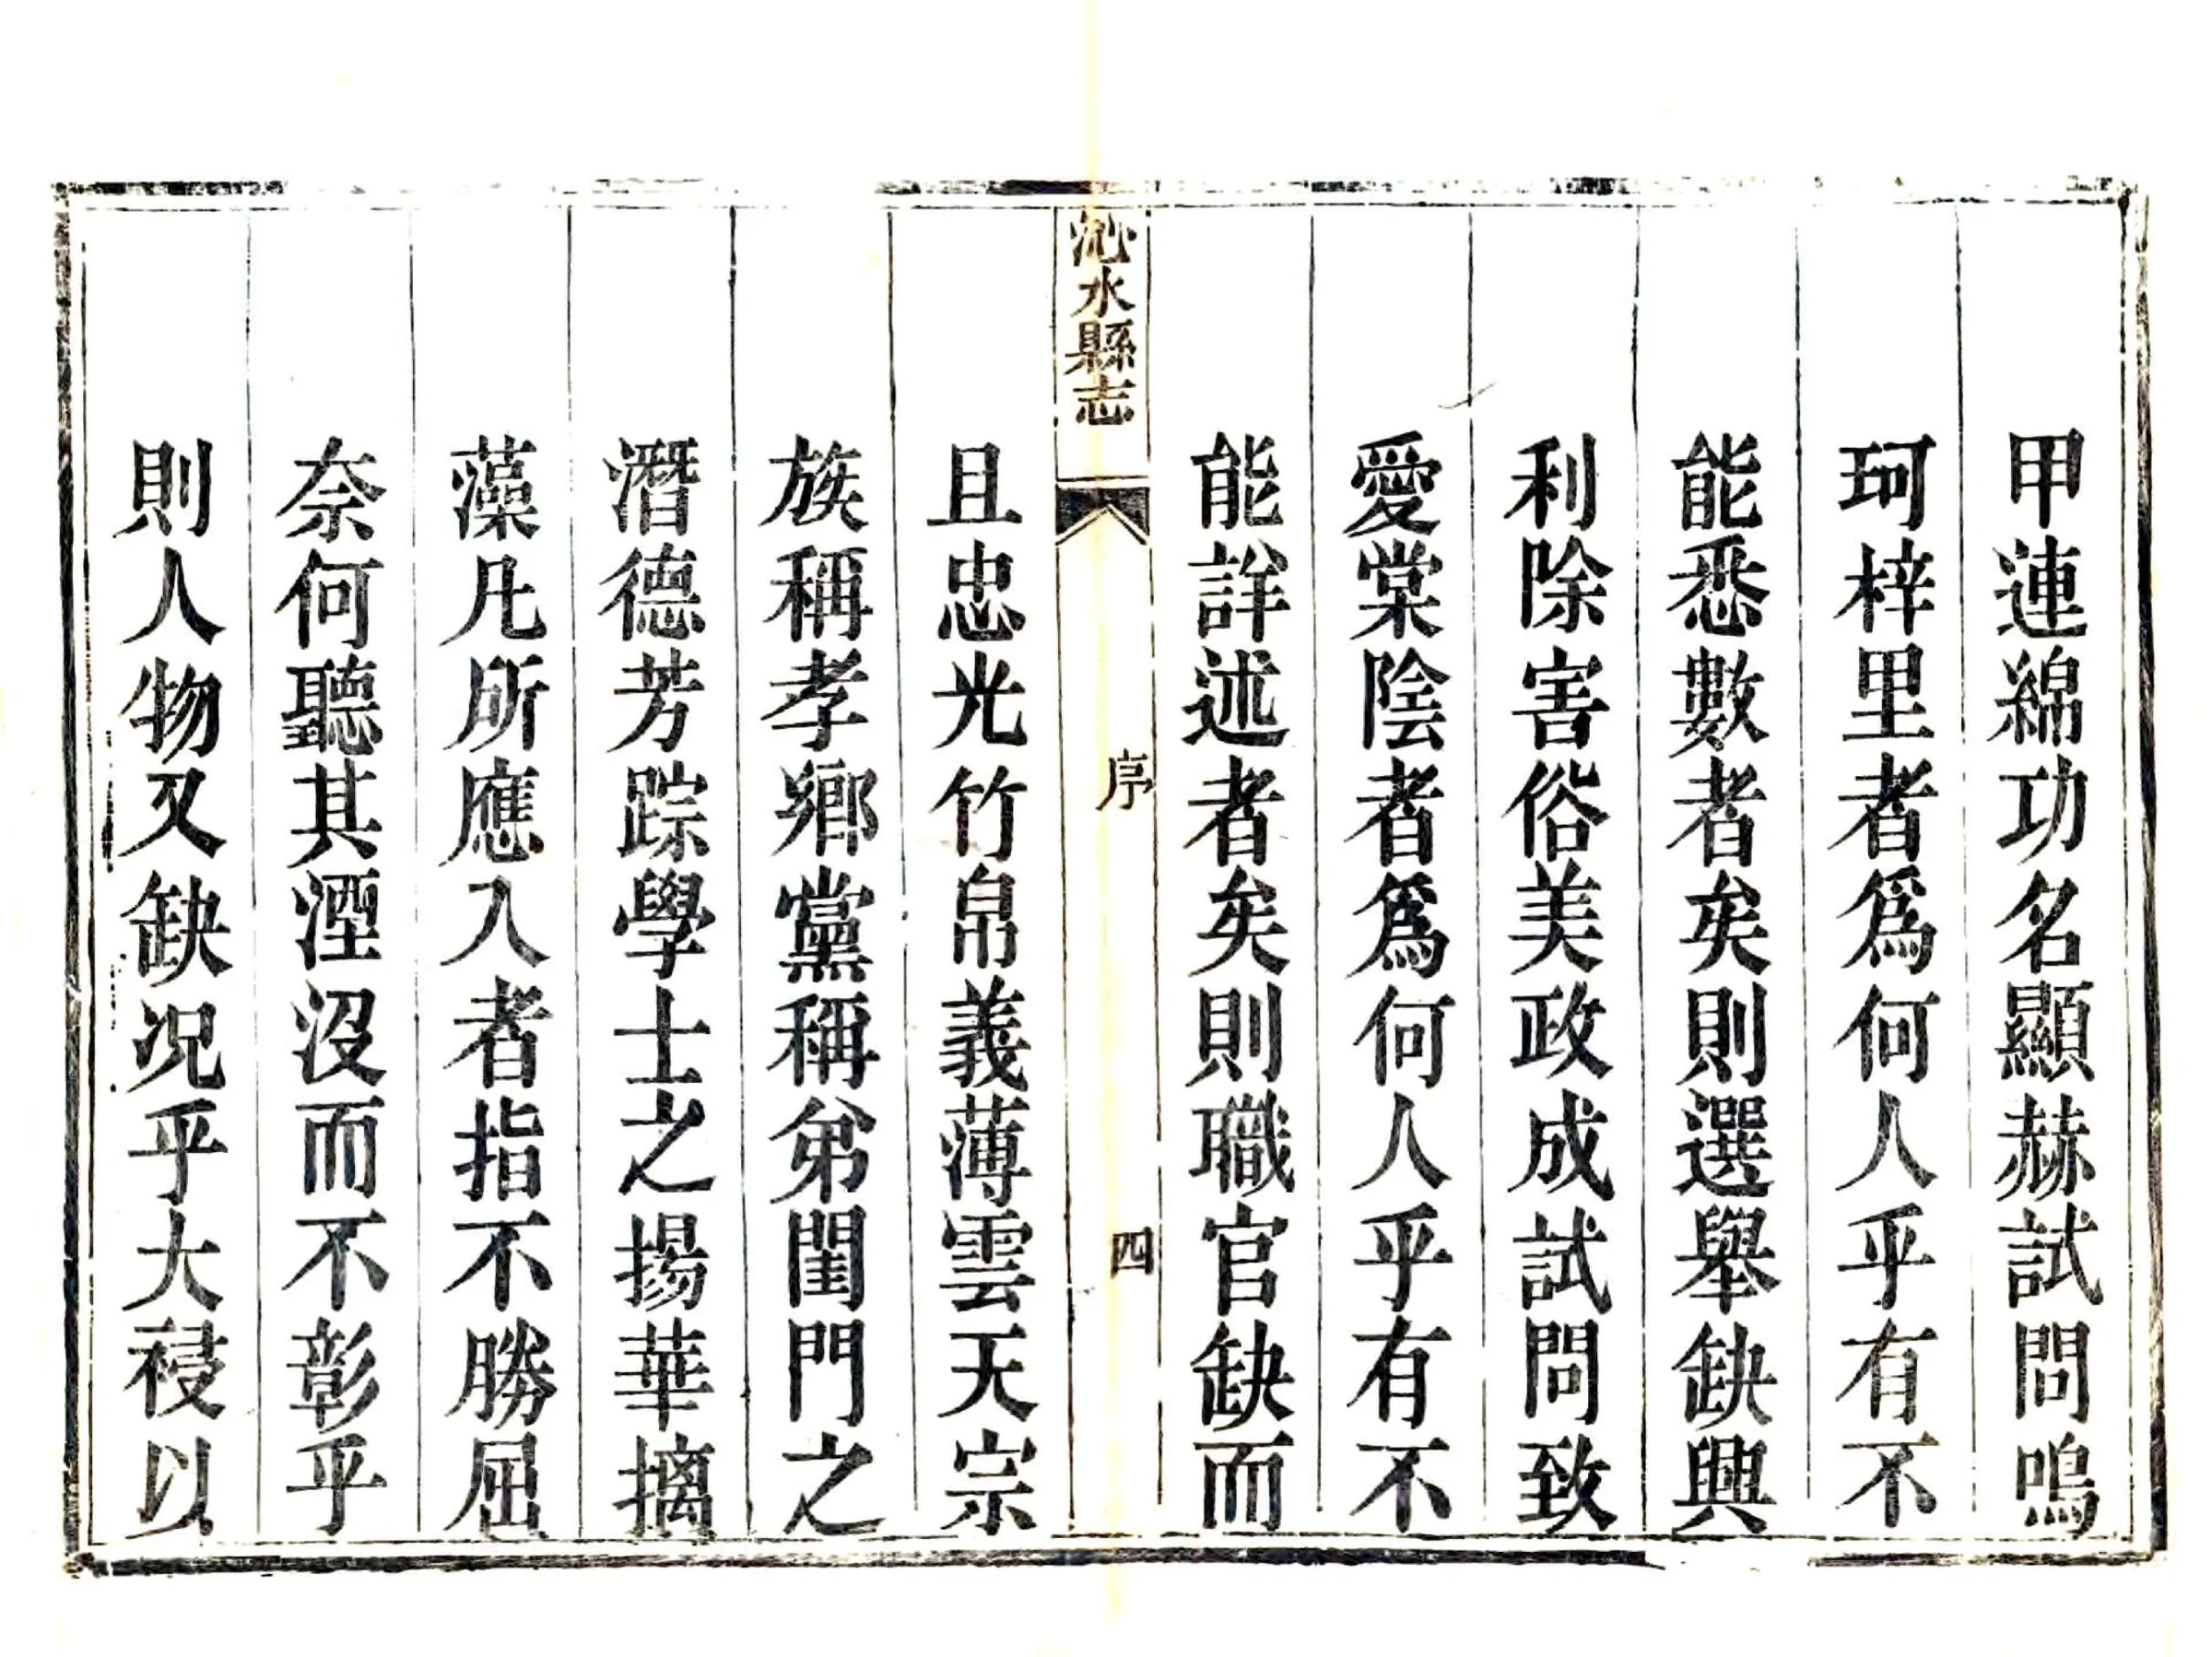 甲連綿功名顯赫試問鳴
珂梓里者爲何人乎有不
能悉數者矣則選舉缺興
利除害俗美政成試問致
愛棠陰者爲何人乎有不
能詳述者矣則職官缺而
沁水縣志
序
四
且忠光竹帛義薄雲天宗
族稱孝鄉黨稱弟閨門之
潛德芳踪學士之揚華摛
藻凡所應入者指不勝屈
奈何聽其湮沒而不彰乎
則人物又缺况乎大祲以